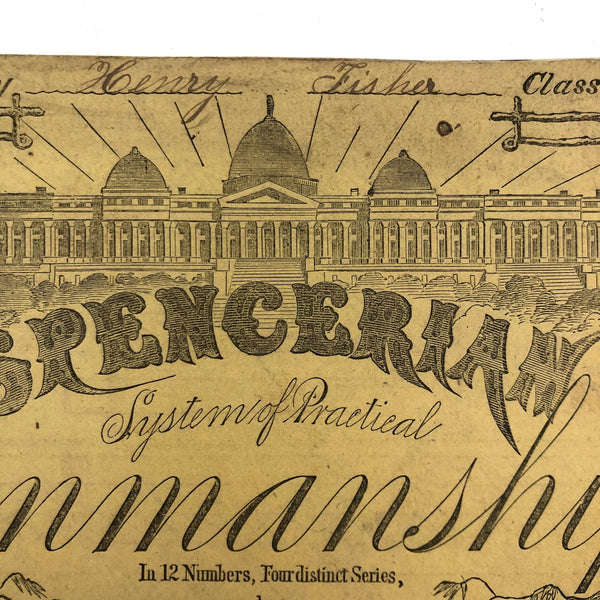 Henry Fisher Class
SPENCERIAN
System of Practical
nmanship
In 12 Numbers, Four distinct Series,